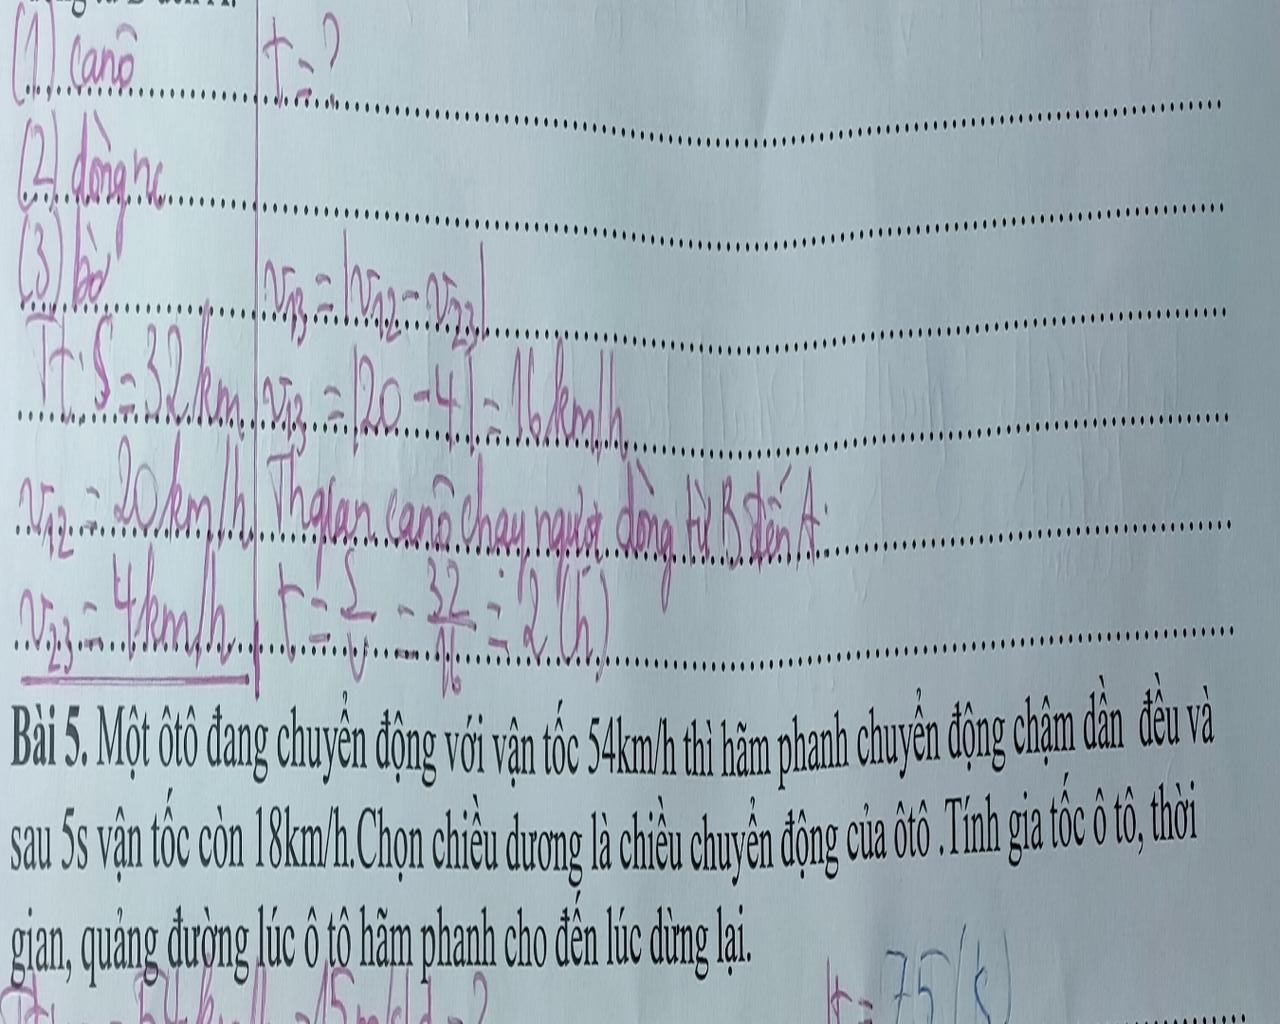 (1) canô t = ?
(2) dòng nc
(3) bờ
v13 = |v12 - v23|
Tt: S = 32km v13 = |20 - 4| = 16km/h
v12 = 20km/h Thgian canô chạy ngược dòng từ B đến A:
v23 = 4km/h t = S/v = 32/16 = 2 (h)
Bài 5. Một ôtô đang chuyển động với vận tốc 54km/h thì hãm phanh chuyển động chậm dần đều và
sau 5s vận tốc còn 18km/h.Chọn chiều dương là chiều chuyển động của ôtô .Tính gia tốc ô tô, thời
gian, quảng đường lúc ô tô hãm phanh cho đến lúc dừng lại.